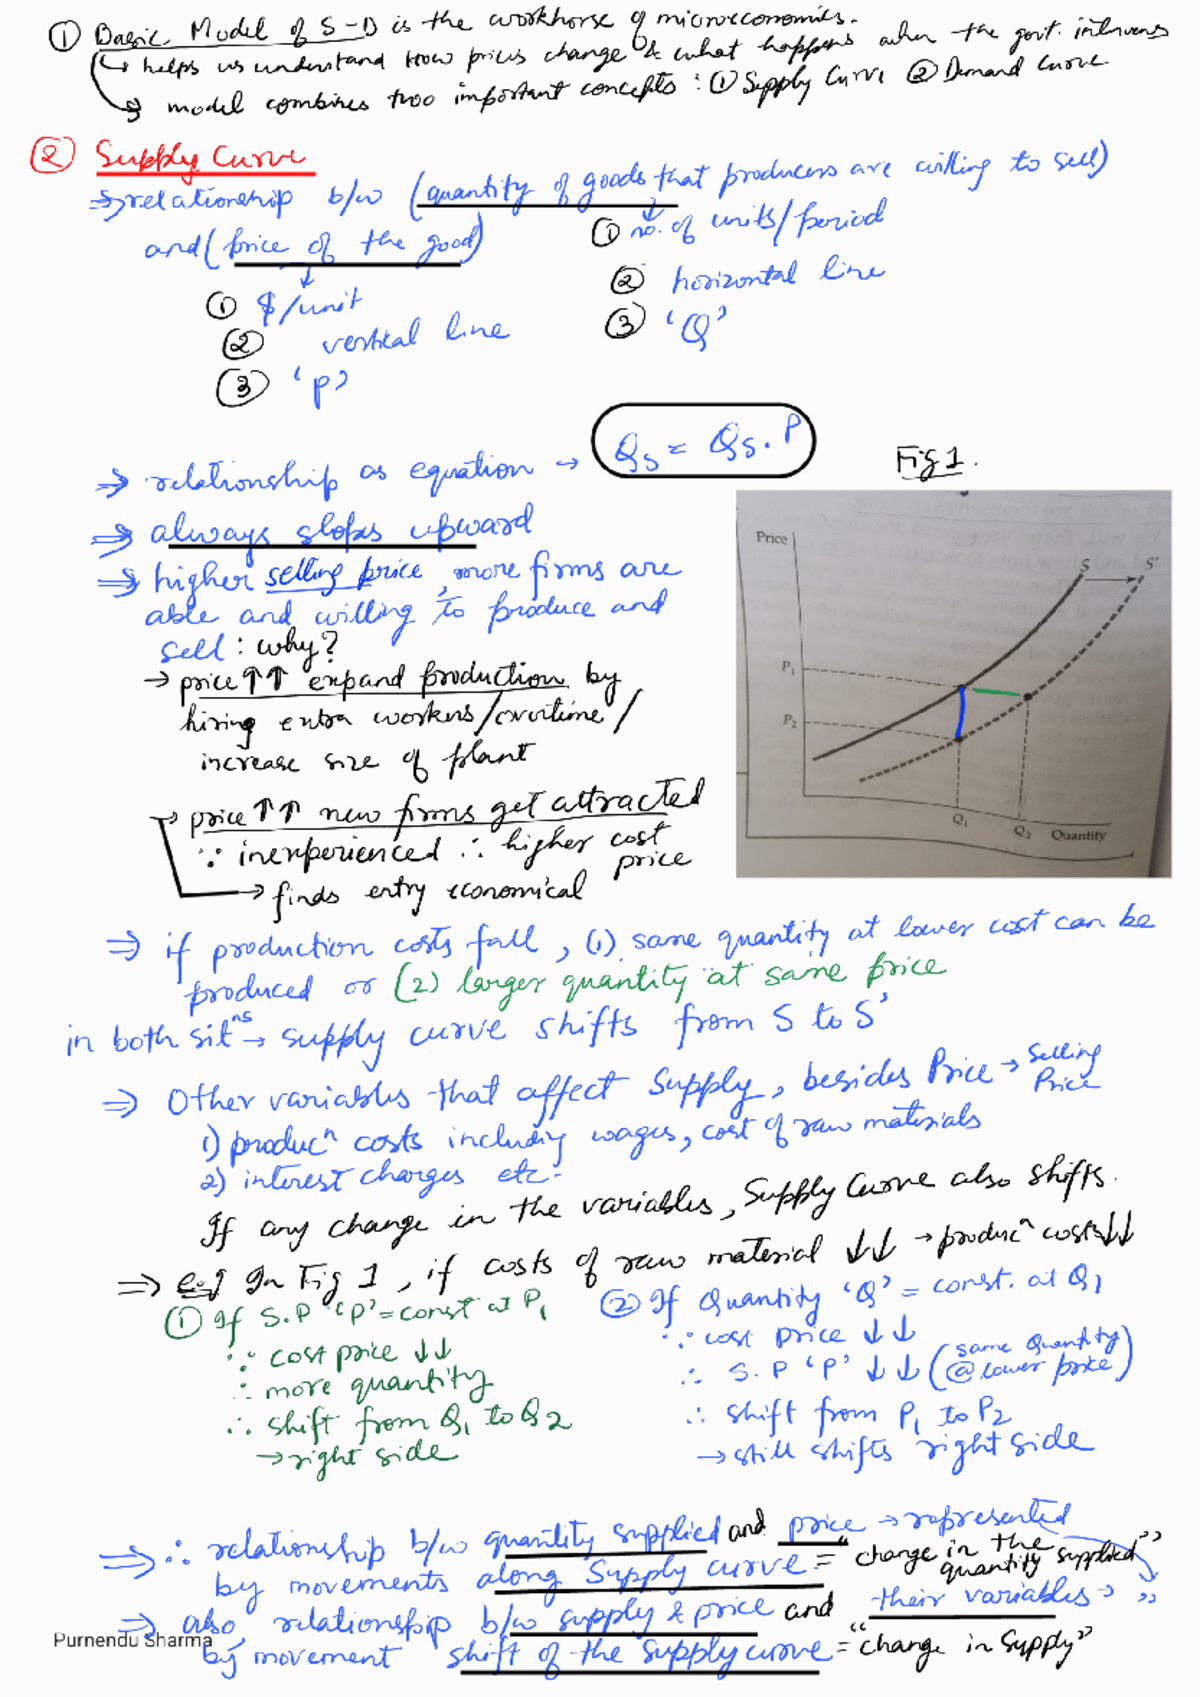 ① Basic Model of S-D is the workhorse of microeconomics.
↳ helps us understand how prices change & what happens when the govt. intervenes
→ model combines two important concepts : ① Supply Curve ② Demand Curve
② Supply Curve
⇒ relationship b/w (quantity of goods that producers are willing to sell)
and (price of the good)
① no. of units/period
② horizontal line
③ 'Q'
① $/unit
② vertical line
③ 'P'
⇒ relationship as equation → Qs = Qs.P
Fig 1.
⇒ always slopes upward
⇒ higher selling price, more firms are
able and willing to produce and
sell : why?
→ price↑↑ expand production by
hiring extra workers/overtime/
increase size of plant
→ price↑↑ new firms get attracted
∵ inexperienced ∴ higher cost
price
→ finds entry economical
Price
S
S'
P₁
P₂
Q₁
Q₂
Quantity
⇒ if production costs fall, (1) same quantity at lower cost can be
produced or (2) larger quantity at same price
in both sitⁿˢ → supply curve shifts from S to S'
⇒ Other variables that affect Supply, besides Price → Selling
Price
1) producⁿ costs including wages, cost of raw materials
2) interest charges etc.
If any change in the variables, Supply Curve also shifts.
⇒ e.g In Fig 1, if costs of raw material ↓↓ → producⁿ costs↓↓
① If S.P 'P' = const at P₁
∵ cost price ↓↓
∴ more quantity
∴ shift from Q₁ to Q2
→ right side
② If Quantity 'Q' = const. at Q₁
∵ cost price ↓↓
∴ S.P 'P' ↓↓ (same Quantity
@ lower price)
∴ shift from P₁ to P2
→ still shifts right side
⇒ ∴ relationship b/w quantity supplied and price → represented
by movements along Supply curve = "change in the
quantity supplied"
⇒ also relationship b/w supply & price and their variables → "
by movement shift of the supply curve = "change in Supply"
Purnendu Sharma